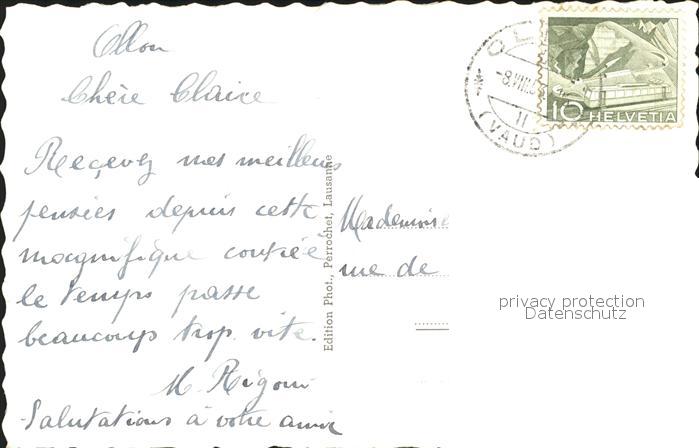 Ollon
Chère Claire
Reçevez mes meilleurs
pensées depuis cette
magnifique contrée
le temps passe
beaucoup trop vite.
M. Rigoni
Salutations à votre amie
Edition Phot., Perrochet, Lausanne
Mademoise
rue de
OL
-8.VIII.5
11
(VAUD)
10 HELVETIA
privacy protection
Datenschutz